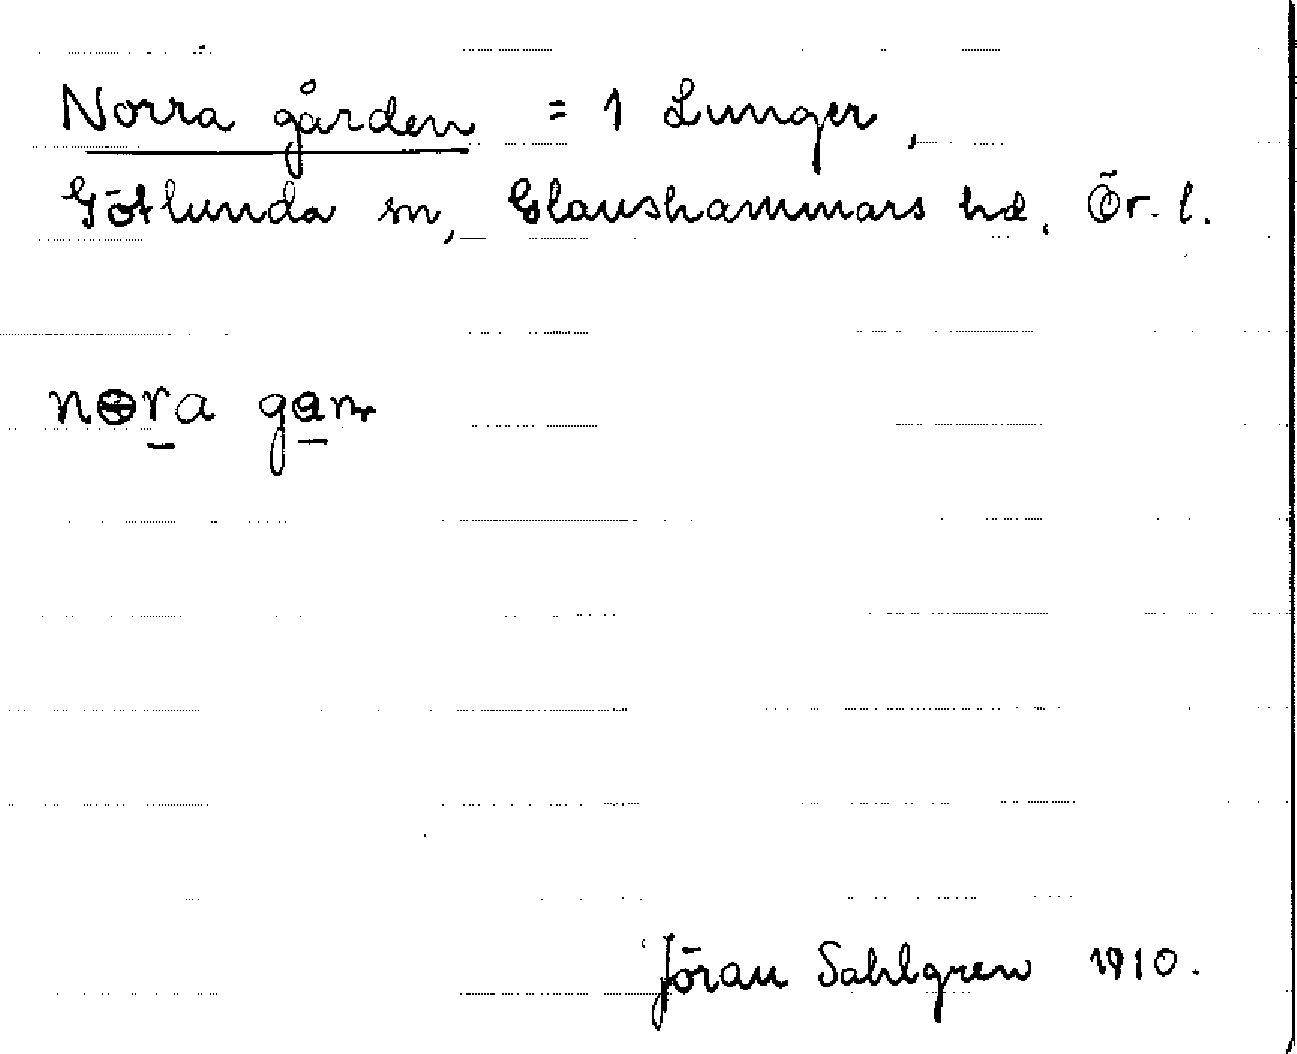 Norra gården = 1 Lunger,
Götlunda sn, Glanshammars hd. Ör. l.
Jöran Sahlgren 1910.